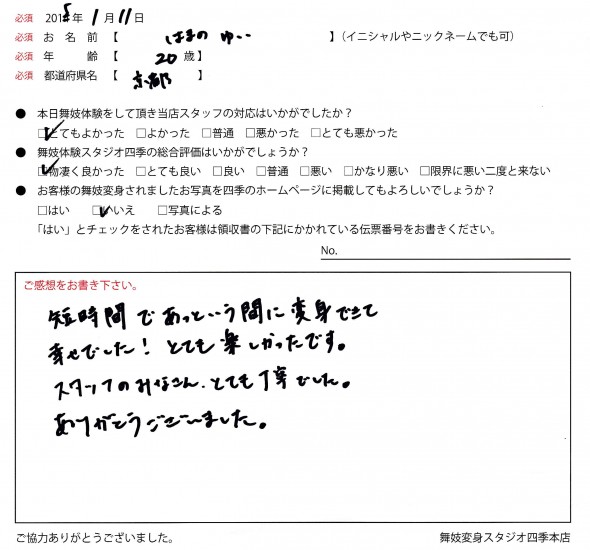 必須 2015年 1月 11日
必須 お名前【 はまの ゆい 】(イニシャルやニックネームでも可)
必須 年齢【 20歳】
必須 都道府県名【 京都 】
● 本日舞妓体験をして頂き当店スタッフの対応はいかがでしたか?
☑とてもよかった □よかった □普通 □悪かった □とても悪かった
● 舞妓体験スタジオ四季の総合評価はいかがでしょうか?
☑物凄く良かった □とても良い □良い □普通 □悪い □かなり悪い □限界に悪い二度と来ない
● お客様の舞妓変身されましたお写真を四季のホームページに掲載してもよろしいでしょうか?
□はい ☑いいえ □写真による
「はい」とチェックをされたお客様は領収書の下記にかかれている伝票番号をお書きください。
No.
ご感想をお書き下さい。
短時間であっという間に変身できて
幸せでした!とても楽しかったです。
スタッフのみなさん、とても丁寧でした。
ありがとうございました。
ご協力ありがとうございました。 舞妓変身スタジオ四季本店